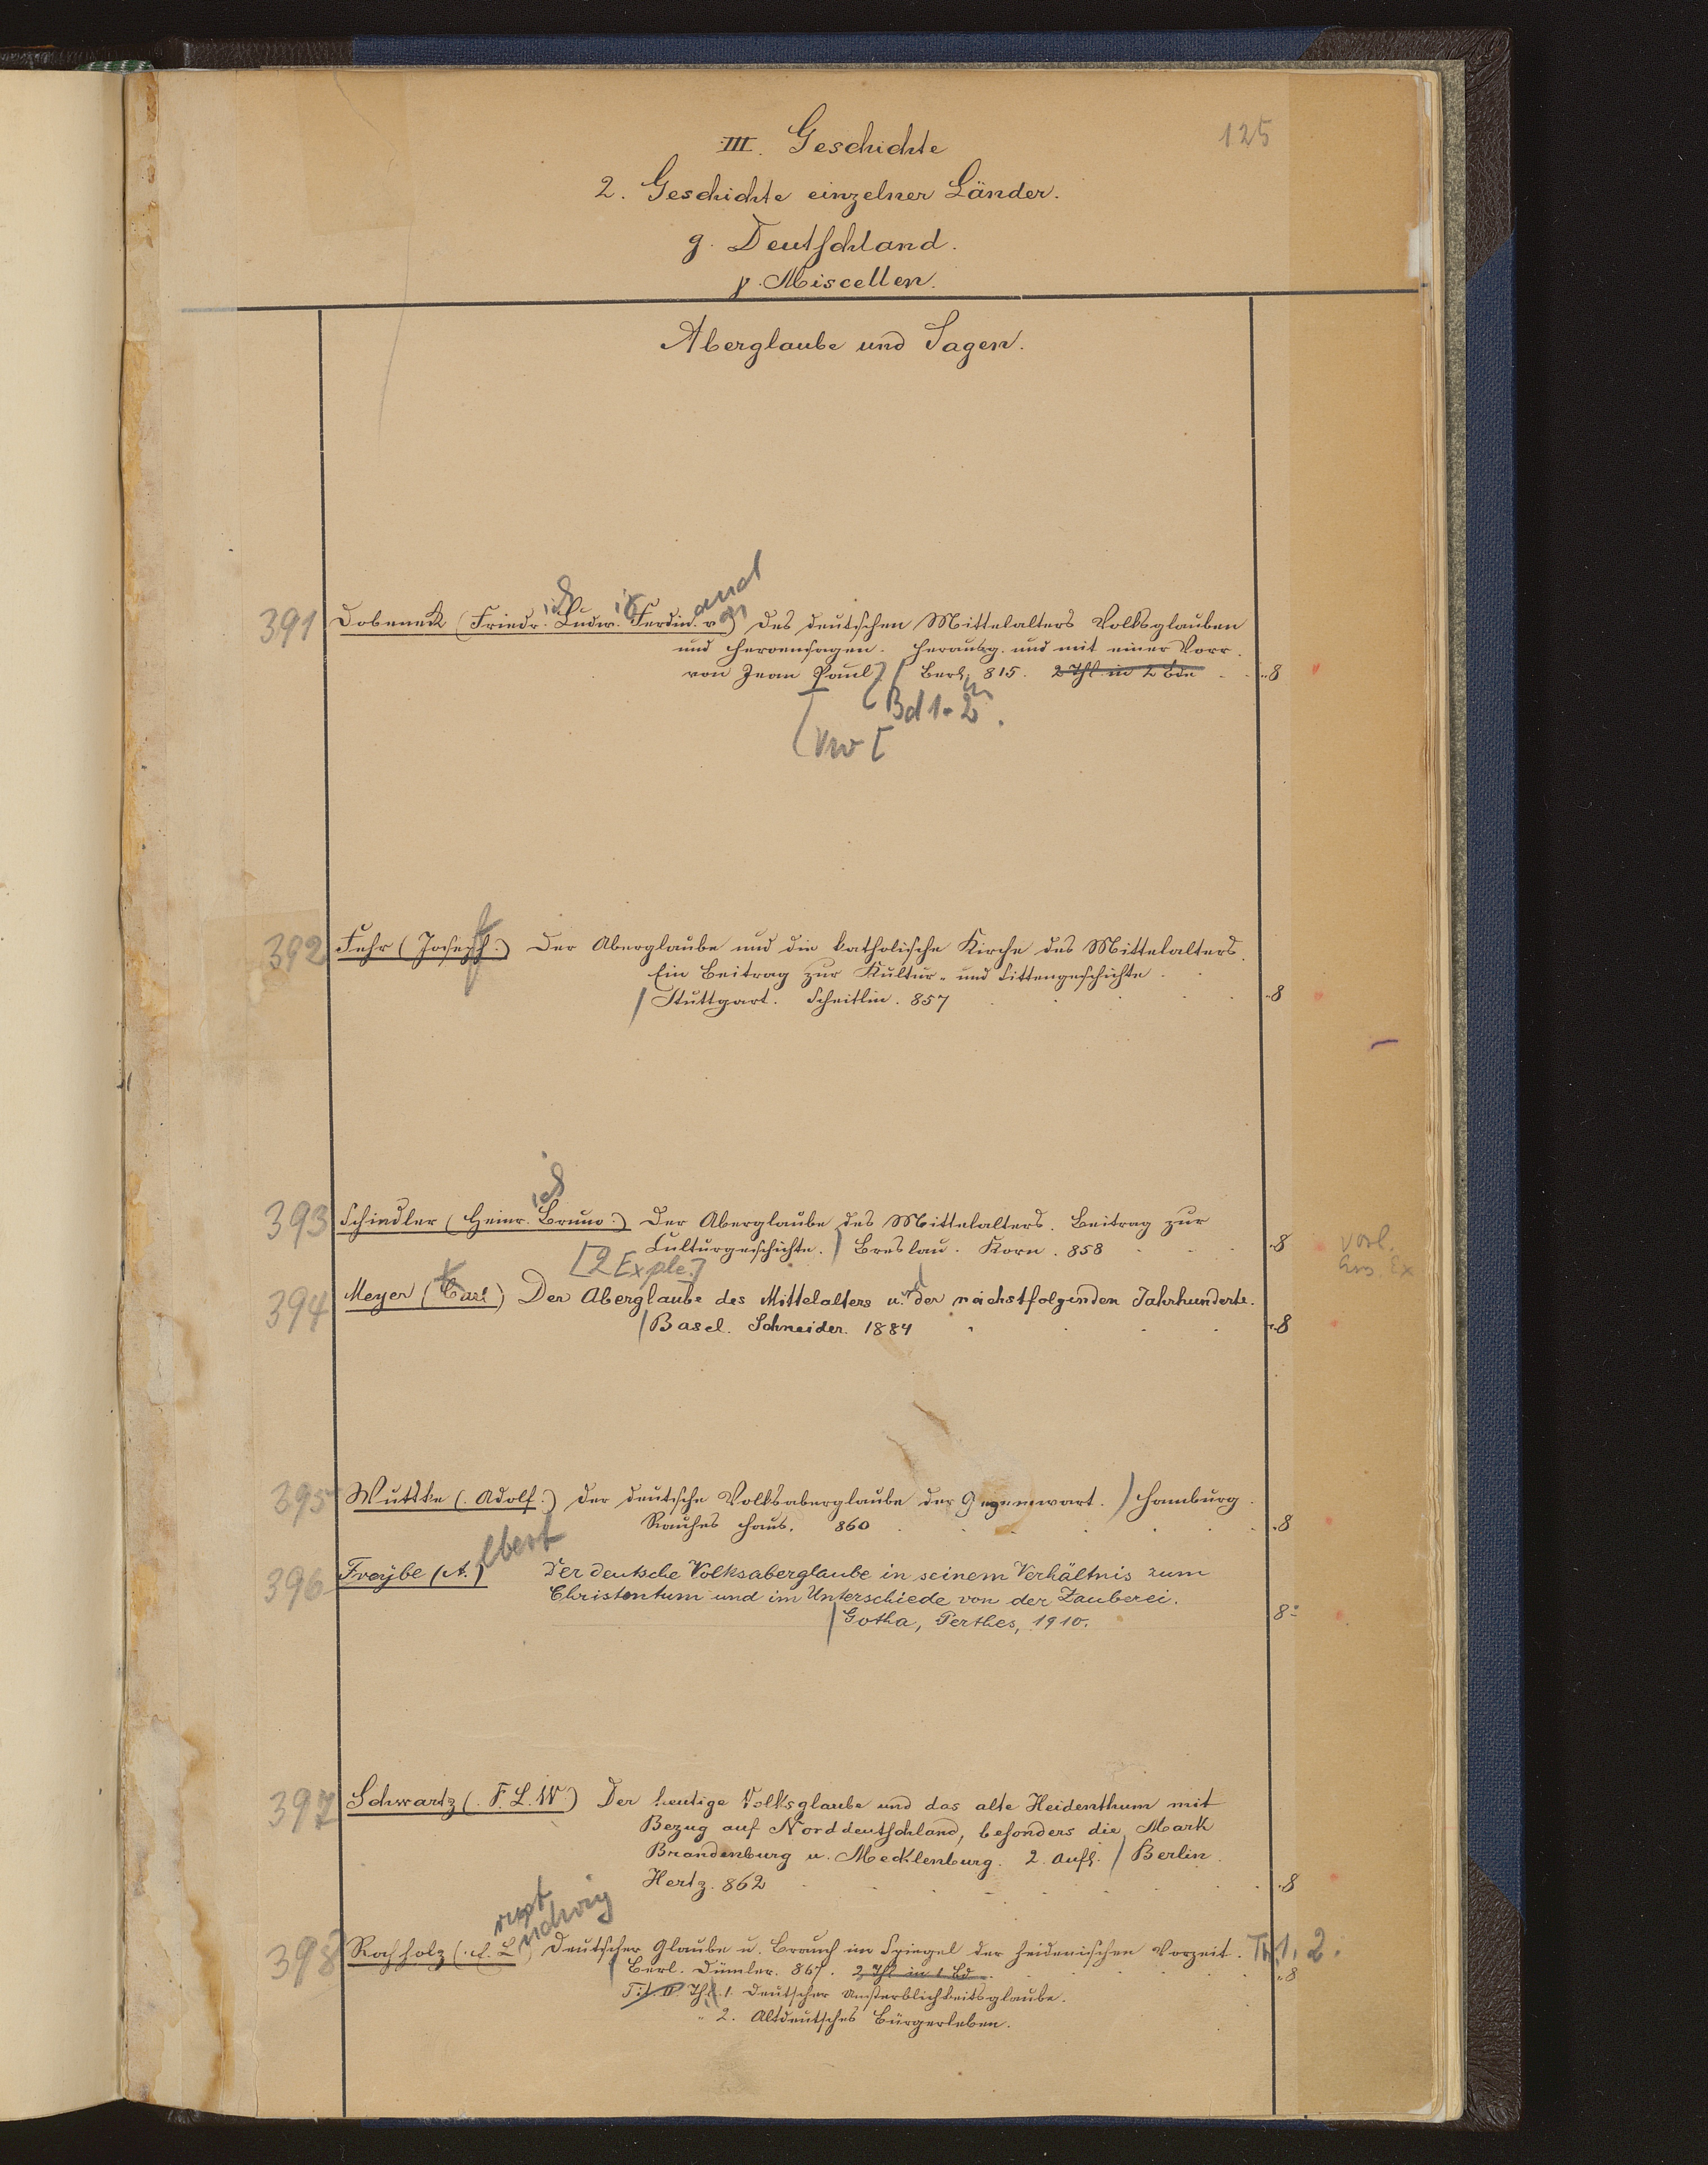 125
III. Geschichte
2. Geschichte einzelner Länder.
g. Deutschland.
γ. Miscellen.
Aberglaube und Sagen.
391 Dobeneck (Friedr. Ludw. Ferdin. v.) Des deutschen Mittelalters Volksglauben
ich ig and on
und Heroensagen. Herausg. und mit einer Vorr.
von Jean Paul] / Berl. 815. 2 Thl. in 2 Bde ..8
Bd 1. 2.
Vw [
392 Fehr (Joseph.) Der Aberglaube und die katholische Kirche des Mittelalters.
Ein Beitrag zur Kultur- und Sittengeschichte.
/ Stuttgart. Scheitlin. 857 .8
393 Schindler (Heinr. Bruno.) Der Aberglaube des Mittelalters. Beitrag zur
ich
Culturgeschichte. / Breslau. Korn. 858 .8 vorl.
[2 Exple.]
394 Meyer (Carl) Der Aberglaube des Mittelalters u. der nächstfolgenden Jahrhunderte.
K d
/ Basel. Schneider. 1884 .8
395 Wuttke (Adolf.) Der deutsche Volksaberglaube der Gegenwart. / Hamburg.
Rauhes Haus. 860 .8
396 Freybe (A.) Der deutsche Volksaberglaube in seinem Verhältnis zum
lbert
Christentum und im Unterschiede von der Zauberei.
/ Gotha, Perthes, 1910. 8°
397 Schwartz (F. L. W.) Der heutige Volksglaube und das alte Heidenthum mit
Bezug auf Norddeutschland, besonders die Mark
Brandenburg u. Mecklenburg. 2. Aufl. / Berlin.
Hertz. 862 .8
398 Rochholz (E. L.) Deutscher Glaube u. Brauch im Spiegel der heidnischen Vorzeit. Th. 1. 2.
rnst udwig
/ Berl. Dümler. 867. 2 Thl in 1 Bd. .8
Tit. Thl. 1. Deutscher Unsterblichkeitsglaube.
" 2. Altdeutsches Bürgerleben.